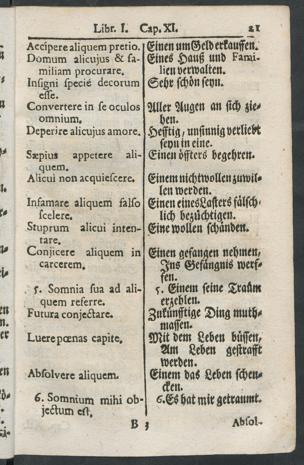 Libr. I. Cap. XI. 21
Accipere aliquem pretio. Einen um Geld erkauffen.
Domum alicujus & fa- Eines Hauß und Fami-
miliam procurare. lien verwalten.
Insigni specie decorum Sehr schön seyn.
esse.
Convertere in se oculos Aller Augen an sich zie-
omnium. hen.
Deperire alicujus amore. Hefftig, unsinnig verliebt
seyn in eine.
Sæpius appetere ali- Einen öffters begehren.
quem.
Alicui non acquiescere. Einem nicht wollen zu wil-
len werden.
Infamare aliquem falso Einen eines Lasters fälsch-
scelere. lich bezüchtigen.
Stuprum alicui inten- Eine wollen schänden.
tare.
Conjicere aliquem in Einen gefangen nehmen,
carcerem. Ins Gefängnis werf-
fen.
5. Somnia sua ad ali- 5. Einem seine Traum
quem referre. erzehlen.
Futura conjectare. Zukünfftige Ding muth-
massen.
Luere pœnas capite. Mit dem Leben büssen,
Am Leben gestrafft
werden.
Absolvere aliquem. Einem das Leben schen-
cken.
6. Somnium mihi ob- 6. Es hat mir getraumt.
jectum est.
B 3 Absol-